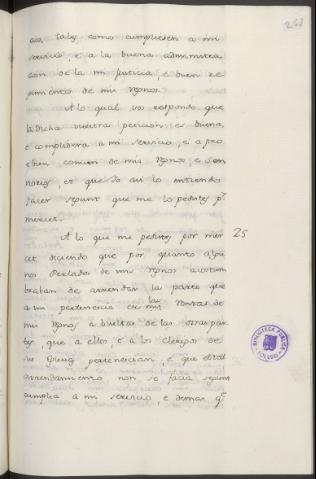 261
das, tales como cumpliesen a mi
servicio, e a la buena administra
cion de la mi Justicia, e buen re
gimiento de mis Regnos.
A lo qual vos respondo que
la dicha vuestra peticion, es buena,
e complidera a mi servicio, e a pro
e bien comun de mis Regnos, e Sen
norios, et que Yo asi lo entiendo
facer segunt que me lo pedistes pr.
merced.
A lo que me pedistes por mer 25
cet, diciendo que por quanto algu
nos Perlados de mis Regnos acostum
braban de arrendar la parte que
a mi pertenecia en las mis Rentas de
mis Regnos a bueltas de las otras par
tes que a ellos e a los Clerigos de
sus Eglesias pertenecian, e que el tal
arrendamiento non se facia segunt
cumplia a mi servicio, e demas qe.
BIBLIOTECA PUBLICA
TOLEDO